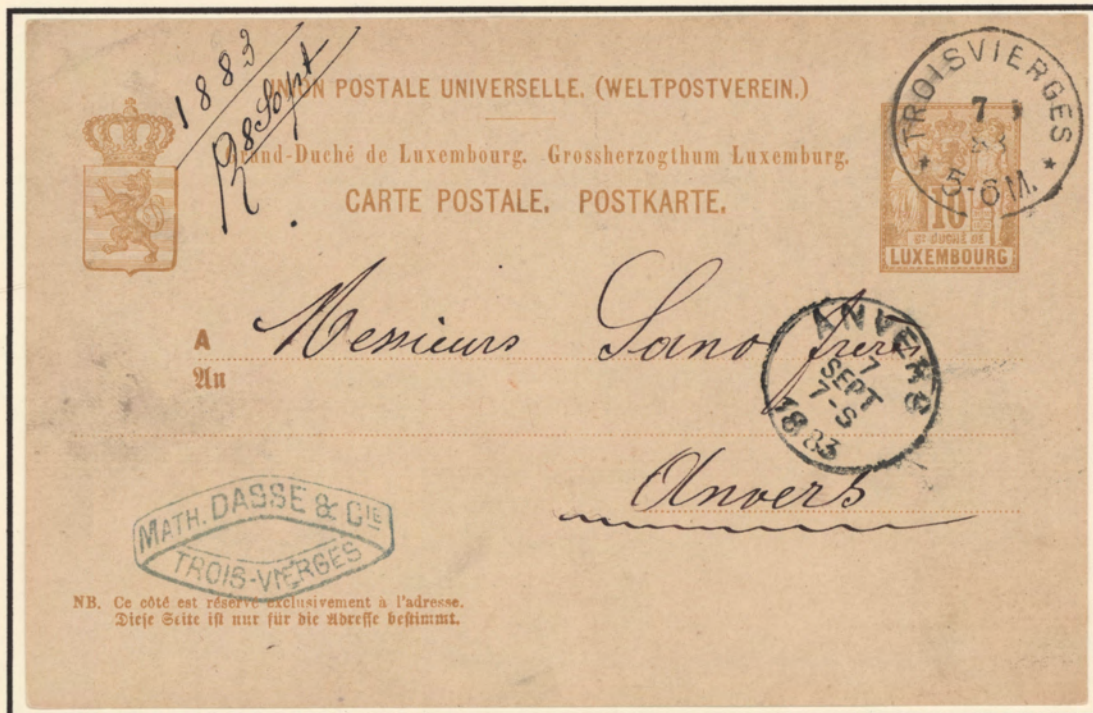 1883
R 8 Sept
UNION POSTALE UNIVERSELLE. (WELTPOSTVEREIN.)
Grand-Duché de Luxembourg. Grossherzogthum Luxemburg.
CARTE POSTALE. POSTKARTE.
TROISVIERGES
7 9
83
5-6 M.
10
GD DUCHÉ DE
LUXEMBOURG
A Messieurs Sano frères
An
ANVERS
7
SEPT
7-S
1883
Anvers
MATH. DASSE & CIE
TROIS-VIERGES
NB. Ce côté est réservé exclusivement à l'adresse.
Diese Seite ist nur für die Adresse bestimmt.